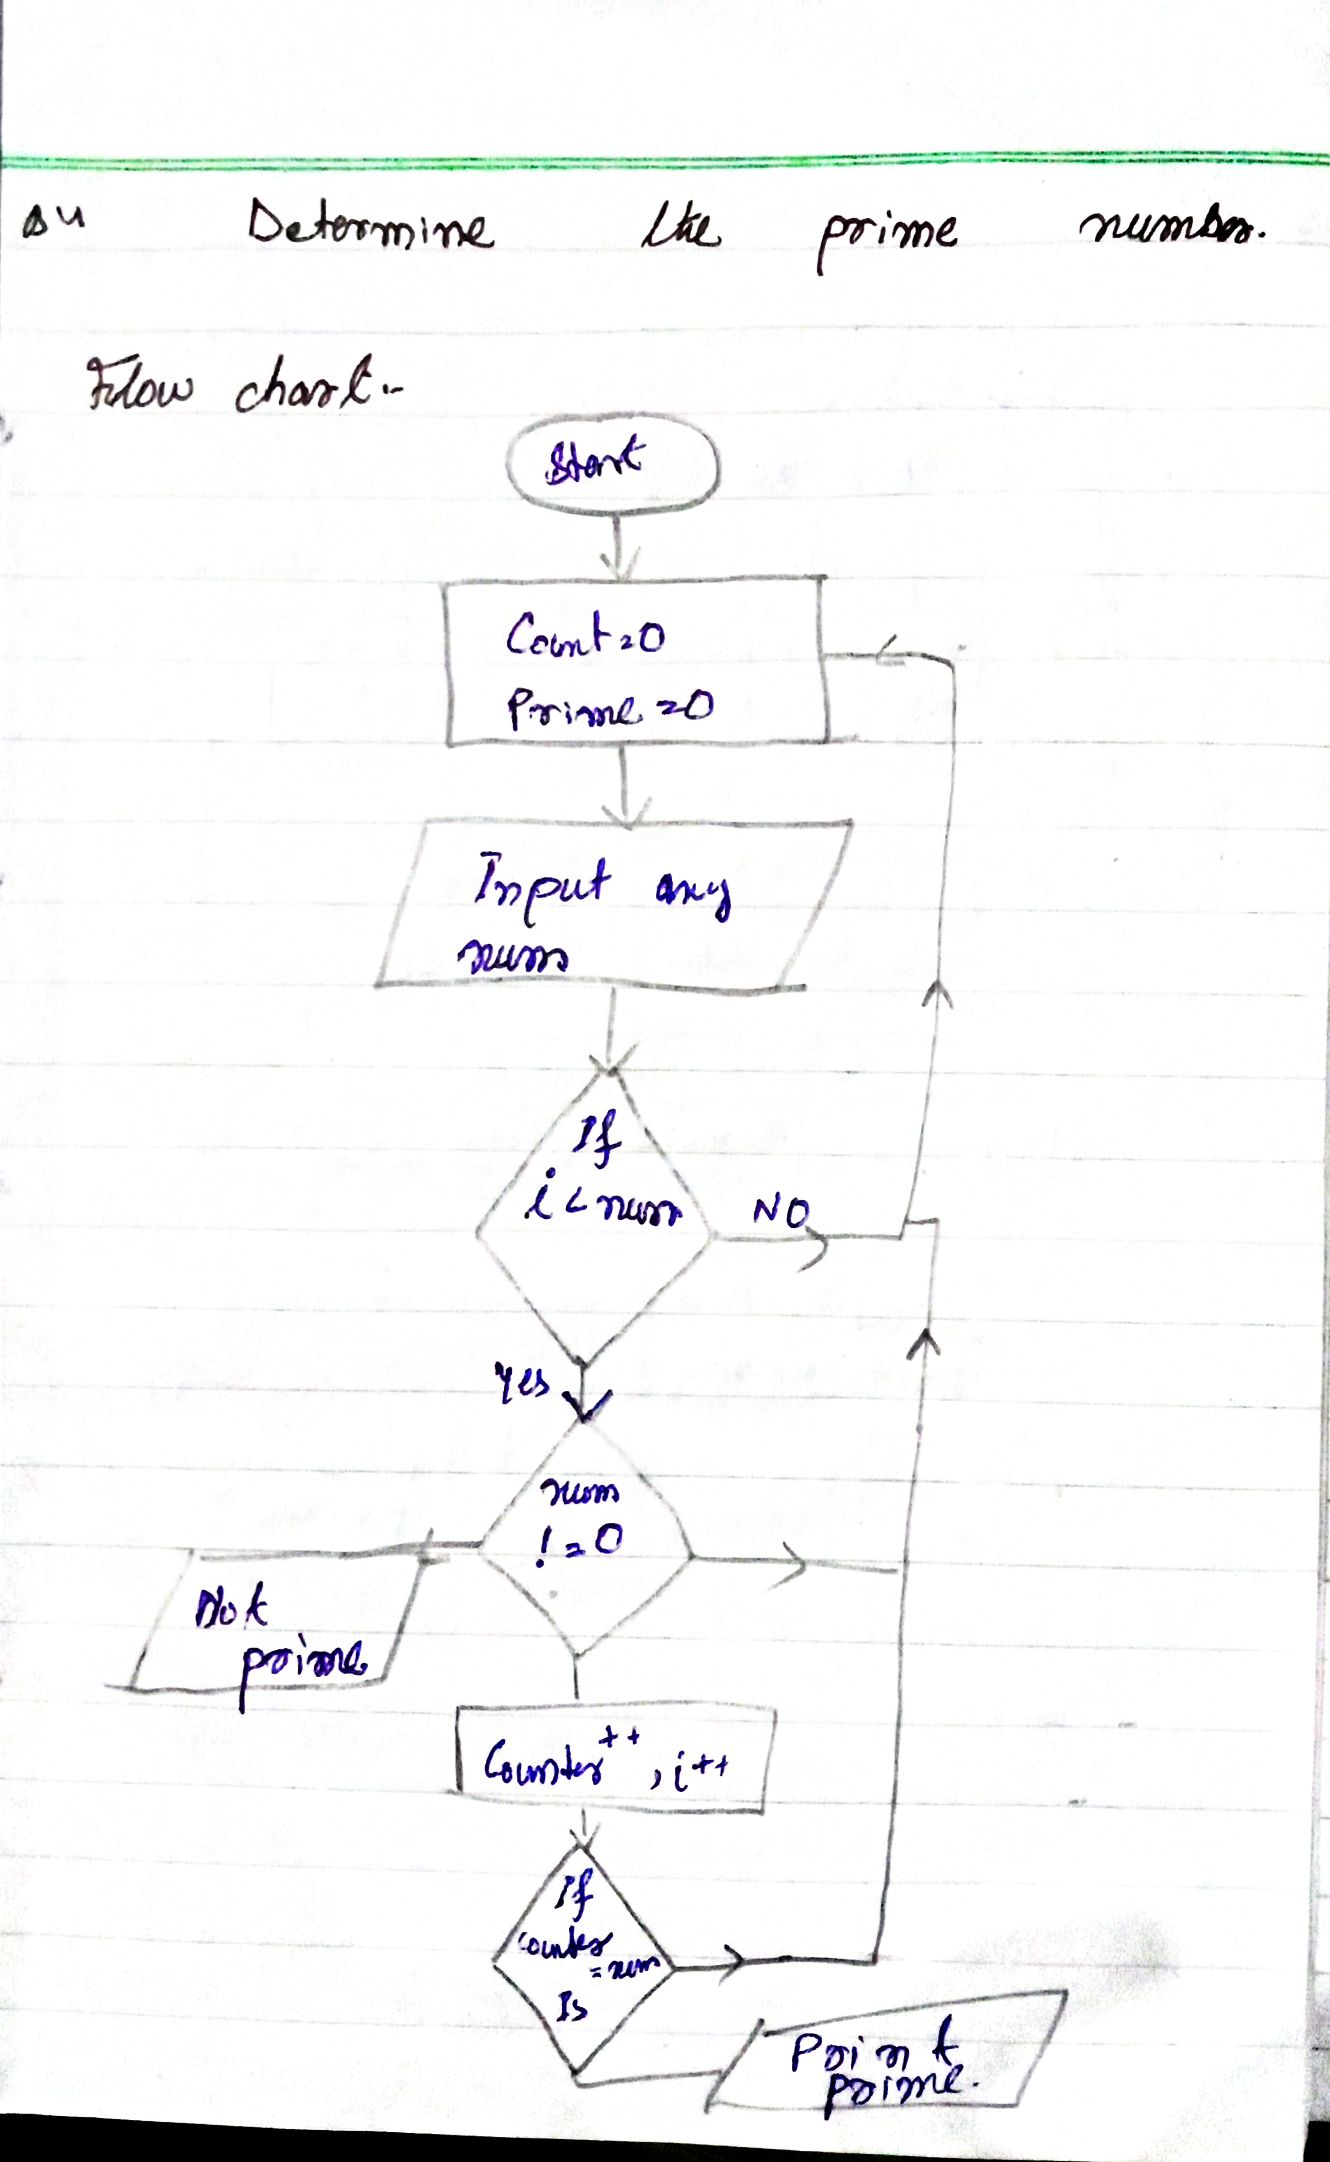 Determine the prime number.
Flow chart:-
Start
Count=0
Prime=0
Input any
num
If
i < num
NO
Yes
num
!=0
Not
prime
Counter++, i++
If
counter
=num
Is
Print
prime.